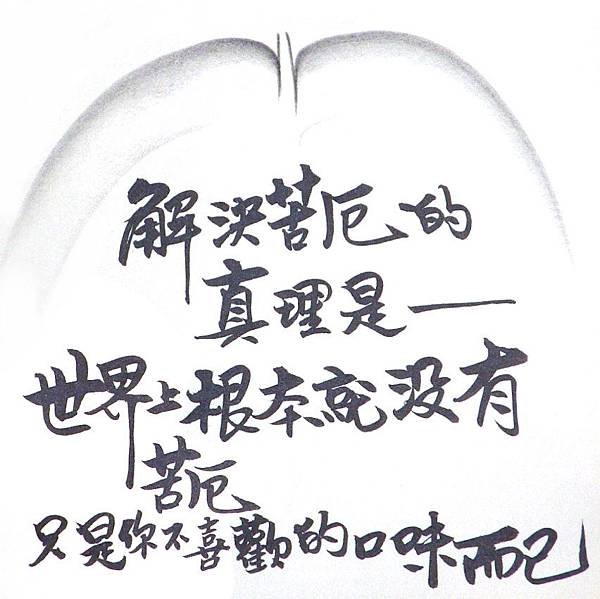 解決苦厄的
真理是——
世界上根本就没有
苦厄
只是你不喜歡的口味而已